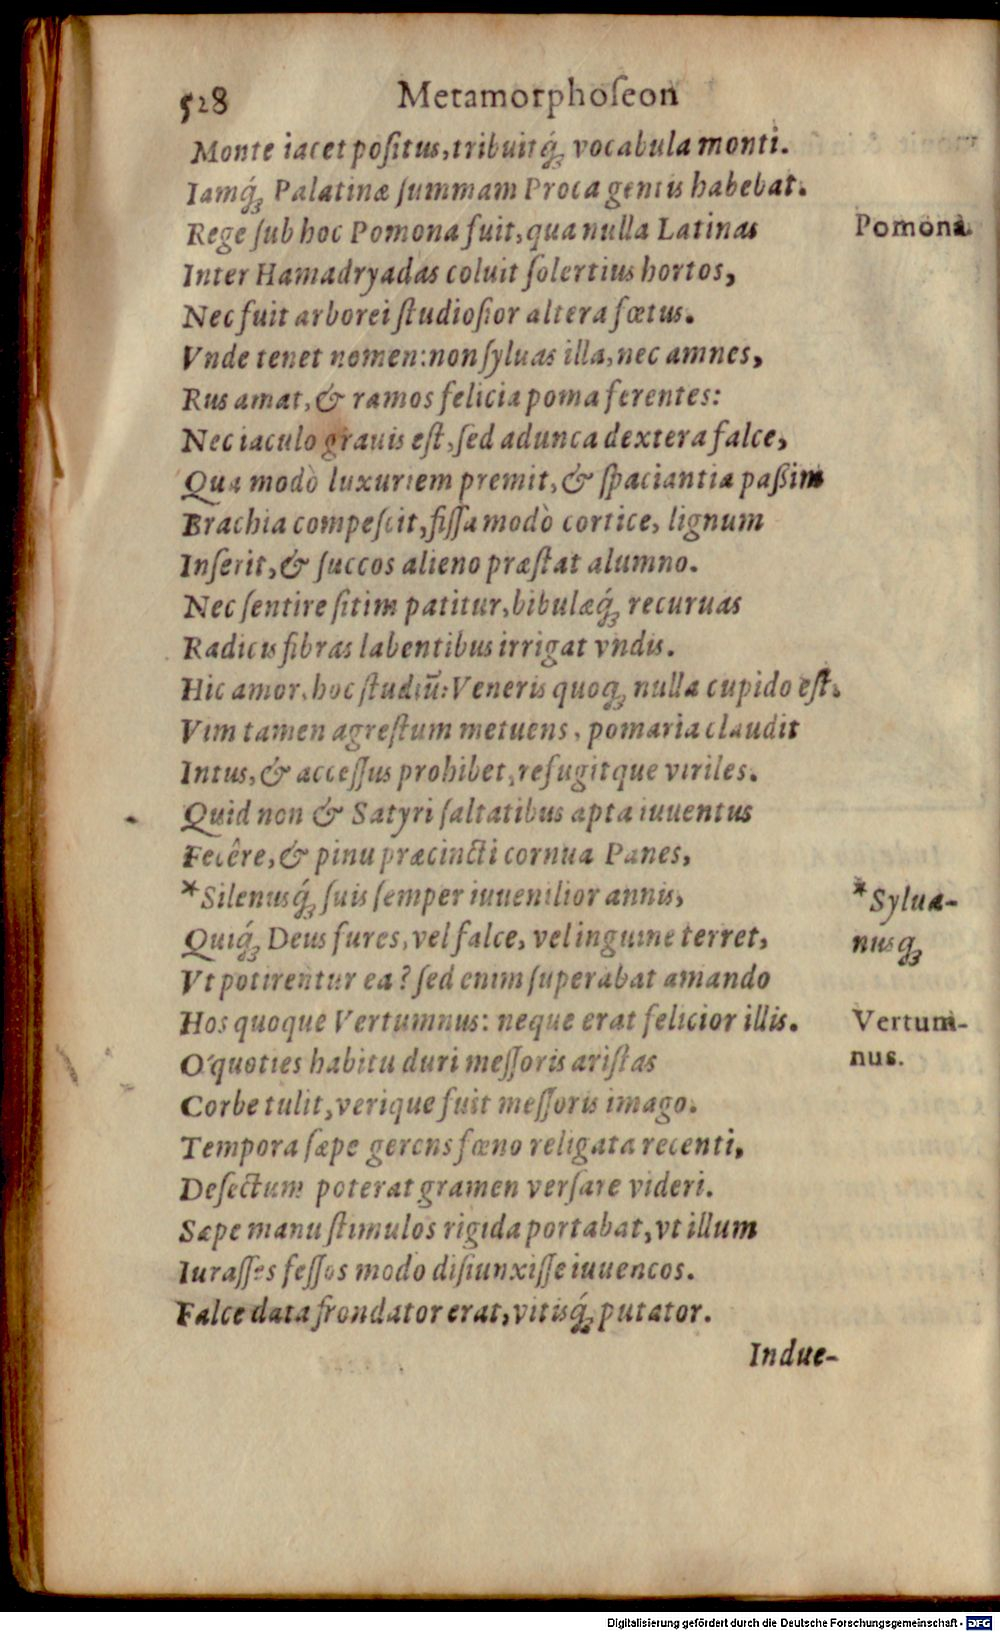 528 Metamorphoſeon
Monte iacet poſitus, tribuitq́ꝫ vocabula monti.
Iamq́ꝫ Palatinæ ſummam Proca gentis habebat.
Rege ſub hoc Pomona fuit, qua nulla Latinas
Pomona.
Inter Hamadryadas coluit ſolertius hortos,
Nec fuit arborei ſtudioſior altera fœtus.
Vnde tenet nomen: non ſyluas illa, nec amnes,
Rus amat, & ramos felicia poma ferentes:
Nec iaculo grauis eſt, ſed adunca dextera falce,
Qua modò luxuriem premit, & ſpaciantia paßim
Brachia compeſcit, fiſſa modò cortice, lignum
Inſerit, & ſuccos alieno præſtat alumno.
Nec ſentire ſitim patitur, bibulæq́ꝫ recuruas
Radicis fibras labentibus irrigat vndis.
Hic amor, hoc ſtudiũ: Veneris quoqꝫ nulla cupido eſt.
Vim tamen agreſtum metuens, pomaria claudit
Intus, & acceſſus prohibet, refugitque viriles.
Quid non & Satyri ſaltatibus apta iuuentus
Fecêre, & pinu præcincti cornua Panes,
*Silenusq́ꝫ ſuis ſemper iuuenilior annis,
*Sylua-
Quiq́ꝫ Deus fures, vel falce, vel inguine terret,
nusqꝫ
Vt potirentur ea? ſed enim ſuperabat amando
Hos quoque Vertumnus: neque erat felicior illis.
Vertum-
nus.
O' quoties habitu duri meſſoris ariſtas
Corbe tulit, verique fuit meſſoris imago.
Tempora ſæpe gerens fœno religata recenti,
Deſectum poterat gramen verſare videri.
Sæpe manu ſtimulos rigida portabat, vt illum
Iuraſſes feſſos modo diſiunxiſſe iuuencos.
Falce data frondator erat, vitisq́ꝫ putator.
Indue-
Digitalisierung gefördert durch die Deutsche Forschungsgemeinschaft - DFG